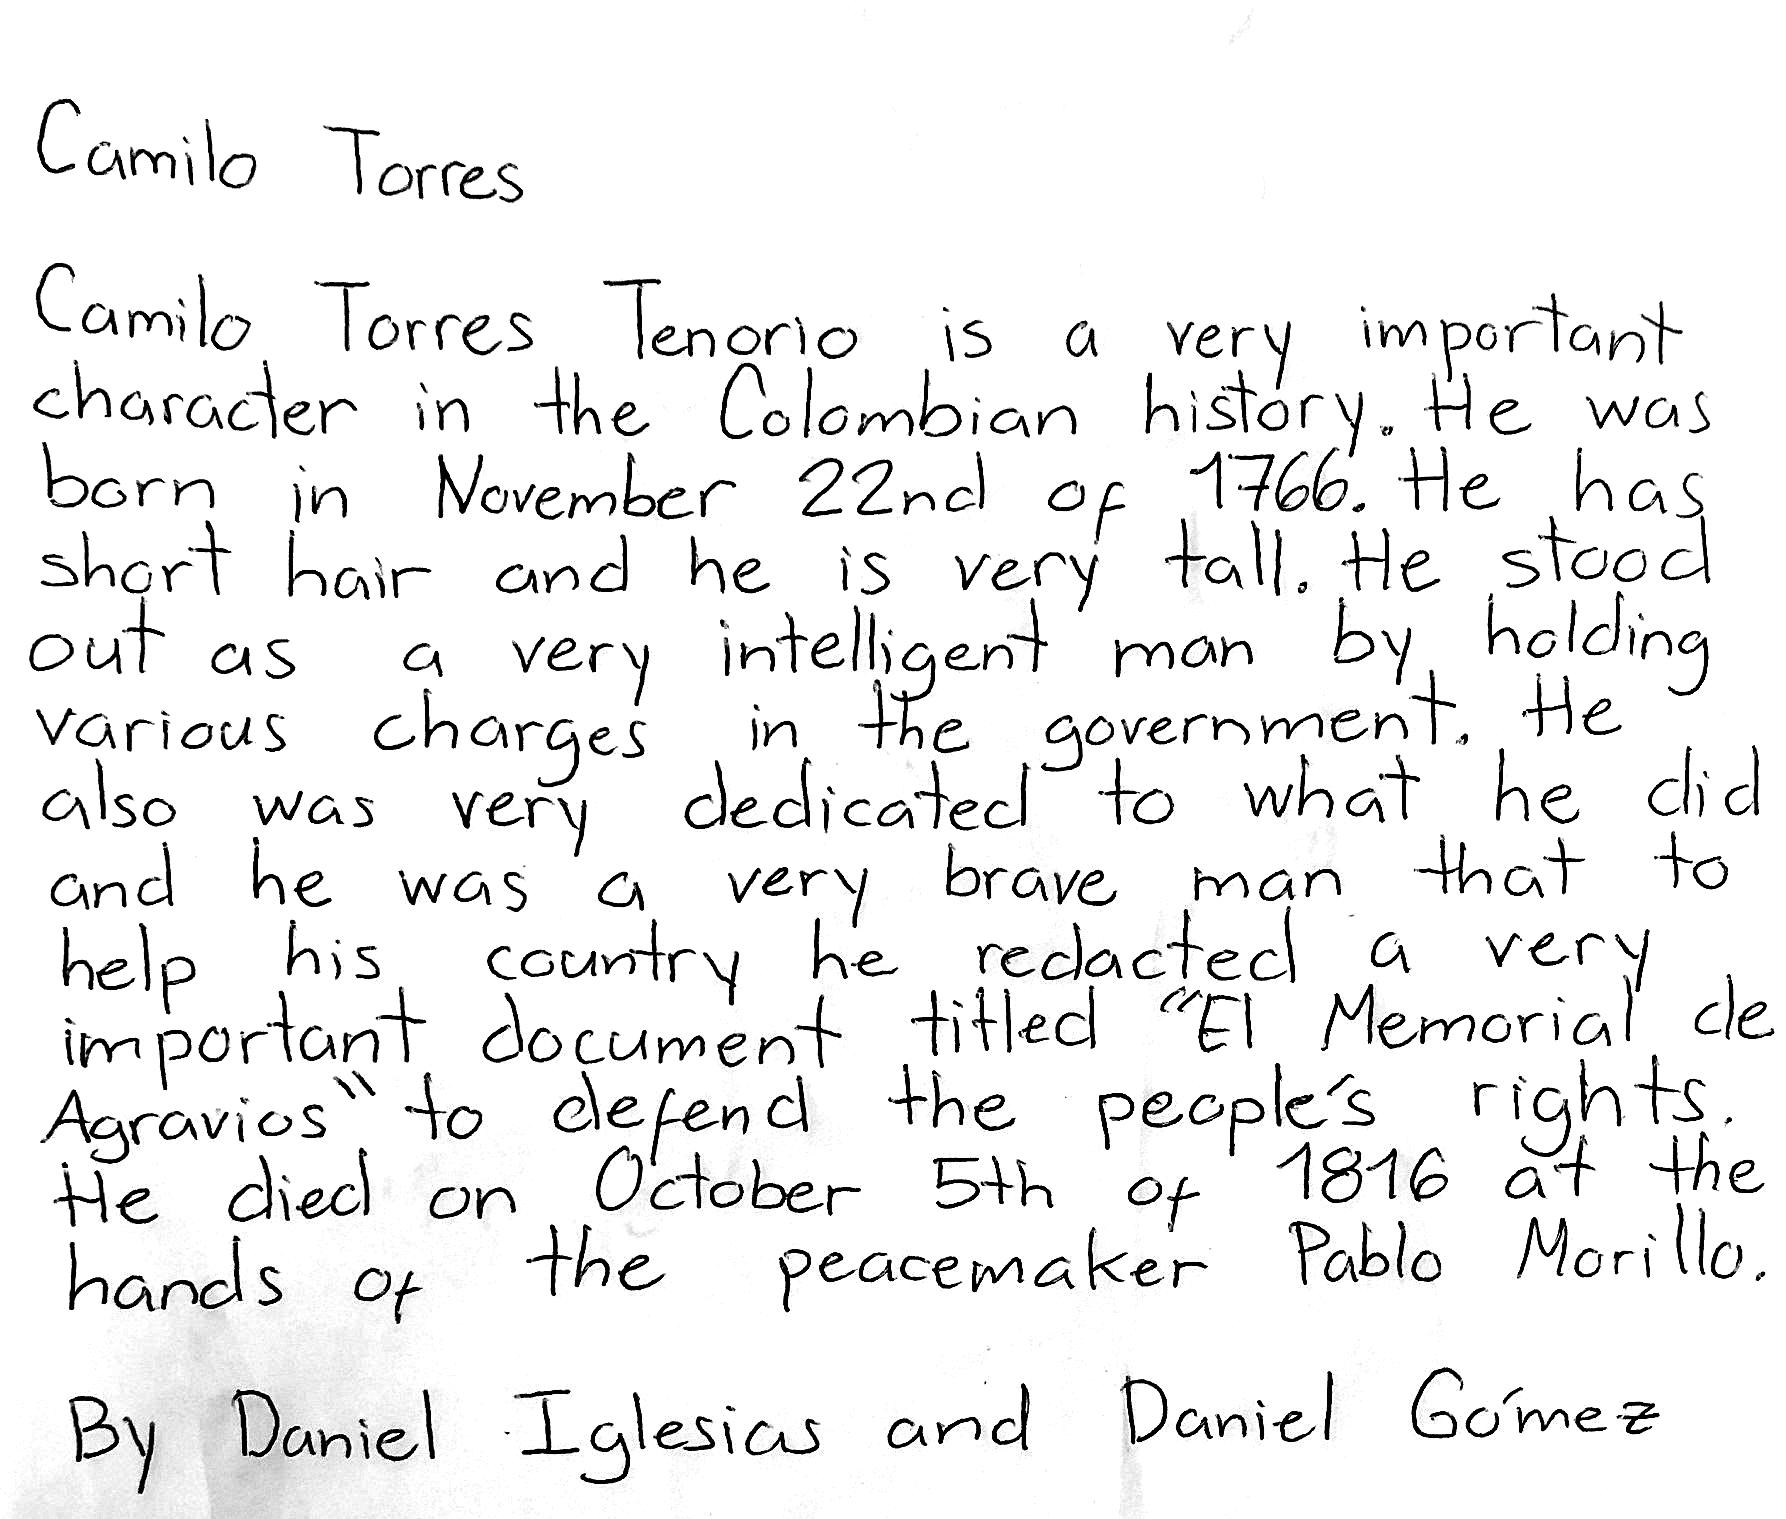 Camilo Torres
Camilo Torres Tenorio is a very important
character in the Colombian history. He was
born in November 22nd of 1766. He has
short hair and he is very tall. He stood
out as a very intelligent man by holding
various charges in the government. He
also was very dedicated to what he did
and he was a very brave man that to
help his country he redacted a very
important document titled "El Memorial de
Agravios" to defend the people's rights.
He died on October 5th of 1816 at the
hands of the peacemaker Pablo Morillo.
By Daniel Iglesias and Daniel Gómez